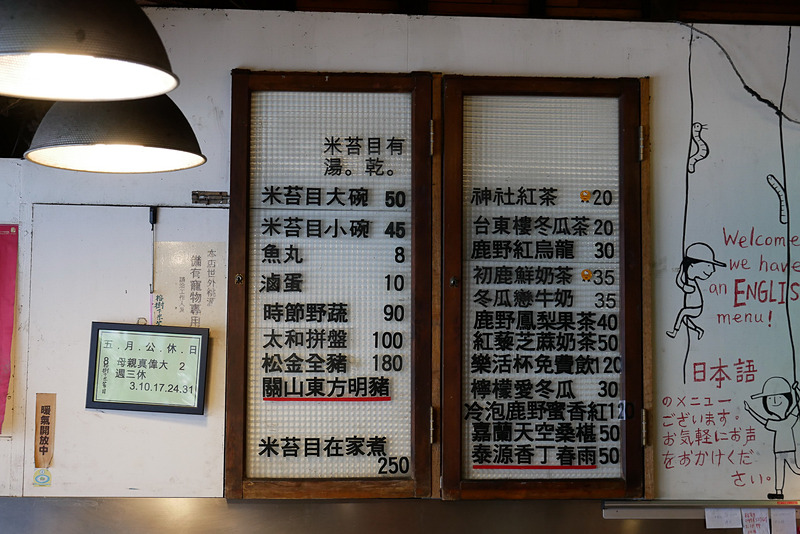 米苔目有
湯。乾。
米苔目大碗 50
米苔目小碗 45
魚丸 8
滷蛋 10
時節野蔬 90
太和拼盤 100
松金全豬 180
關山東方明豬
米苔目在家煮
250
神社紅茶 20
台東樓冬瓜茶 20
鹿野紅烏龍 30
初鹿鮮奶茶 35
冬瓜戀牛奶 35
鹿野鳳梨果茶 40
紅藜芝麻奶茶 50
樂活杯免費飲 120
檸檬愛冬瓜 30
冷泡鹿野蜜香紅 120
嘉蘭天空桑椹 50
泰源香丁春雨 50
本店世外桃源
備有寵物專用
五.月.公.休.日
8 母親真偉大 2
週三休
3.10.17.24.31
暖氣開放中
Welcome
we have
an ENGLIS
menu!
日本語
のメニュー
ございます。
お気軽にお声
をおかけくだ
さい。